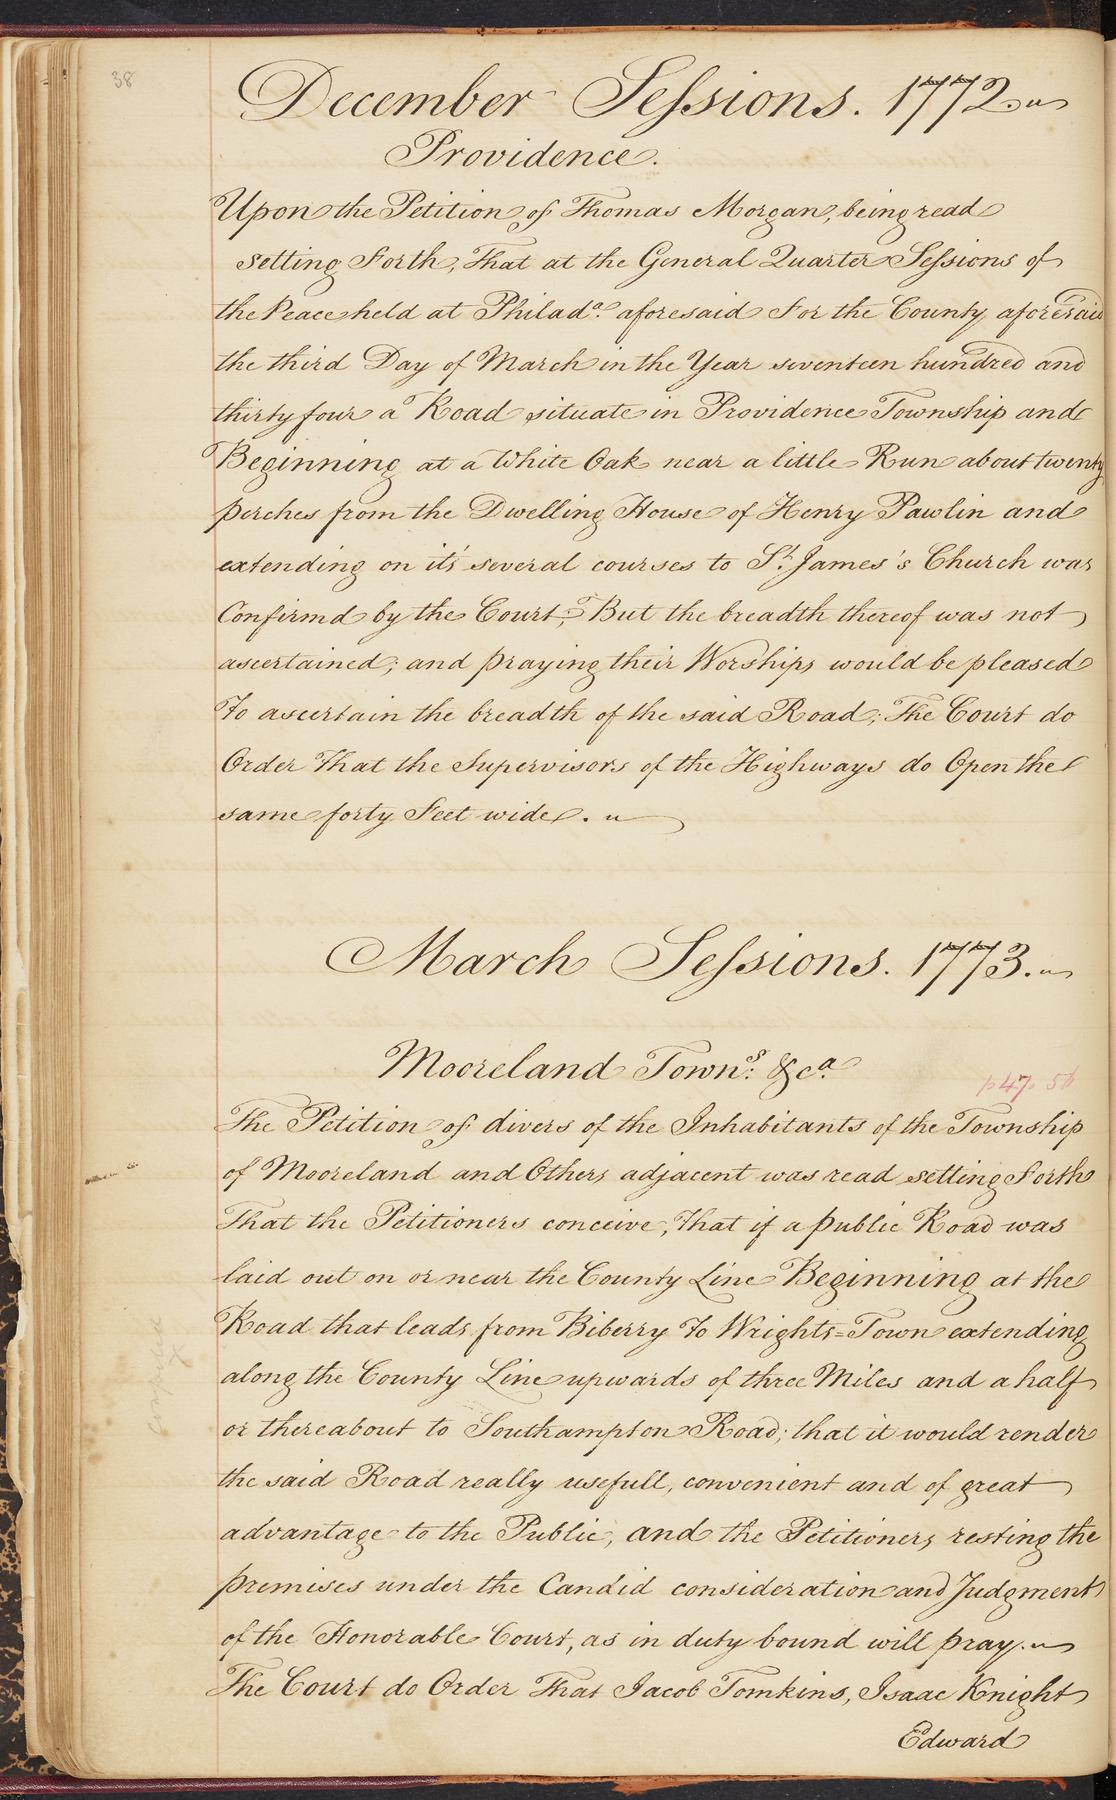 38
December Sessions. 1772.
Providence.
Upon the Petition of Thomas Morgan, being read
setting Forth, That at the General Quarter Sessions of
the Peace held at Philad.a aforesaid For the County aforesaid
the third Day of March in the Year seventeen hundred and
thirty four a Road situate in Providence Township and
Beginning at a White Oak near a little Run about twenty
perches from the Dwelling House of Henry Pawlin and
extending on it's several courses to St. James's Church was
Confirmd by the Court; But the breadth thereof was not
ascertained; and praying their Worships would be pleased
To ascertain the breadth of the said Road; The Court do
Order That the Supervisors of the Highways do Open the
same forty Feet wide.
March Sessions. 1773.
Mooreland Town.s &ca.
p47. 56
The Petition of divers of the Inhabitants of the Township
of Mooreland and Others adjacent was read setting Forth
That the Petitioners conceive, That if a public Road was
laid out on or near the County Line Beginning at the
Road that leads from Biberry To Wrights=Town extending
along the County Line upwards of three Miles and a half
or thereabout to Southampton Road; that it would render
the said Road really usefull, convenient and of great
advantage to the Public, and the Petitioners resting the
premises under the Candid consideration and Judgment
of the Honorable Court, as in duty bound will pray.
The Court do Order That Jacob Tomkins, Isaac Knight
Edward